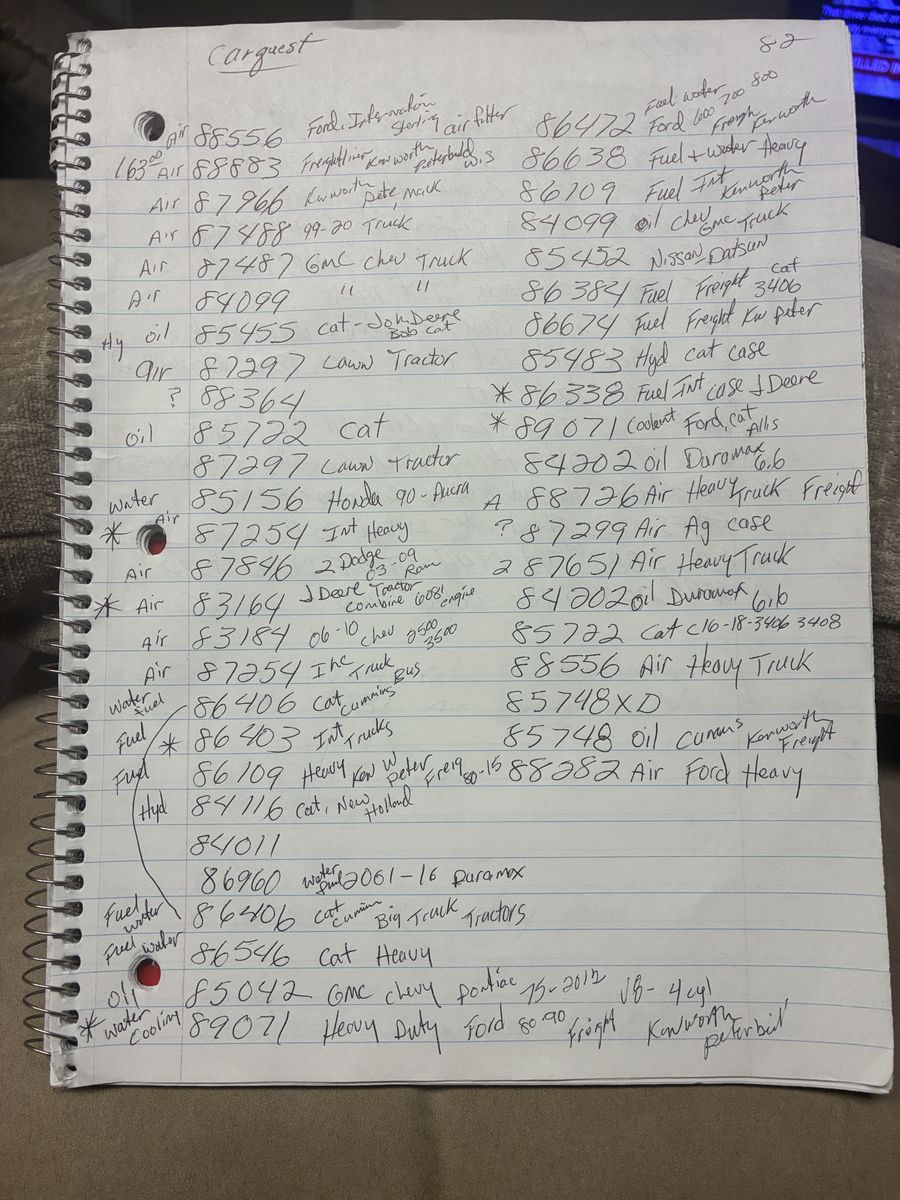 Carquest
82
Air 88556 Ford, Internation Sterling air filter
163.00 Air 88883 Freightliner Kenworth Peterbuld W.S
Air 87966 Kenworth Pete, Mack
Air 87488 99-20 Truck
Air 87487 GMC Chev Truck
Air 84099 " "
Hy oil 85455 Cat - John Deere Bob Cat
air 87297 Lawn Tractor
? 88364
oil 85722 Cat
87297 Lawn Tractor
water 85156 Honda 90 - Acura
* Air 87254 Int Heavy
Air 87846 2 Dodge 03-09 Ram
* Air 83164 J Deere Tractor Combine 6081 engine
Air 83184 06-10 Chev 2500 3500
Air 87254 Inc Truck Bus
Water Fuel 86406 Cat Cummins
Fuel * 86403 Int Trucks
Fuel 86109 Heavy Ken W Peter Freig 80-15
Hyd 84116 Cat, New Holland
84011
86960 water fuel 2001-16 Duramax
Fuel water 86406 Cat Cumin Big Truck Tractors
Fuel water 86546 Cat Heavy
oil 85042 GMC Chevy Pontiac 75-2012 V8 - 4 cyl
* Water Cooling 89071 Heavy Duty Ford 80-90 Freight Kenworth Peterbil
86472 Fuel water Ford 600 700 800 Freigh Kenworth
86638 Fuel + water Heavy
86109 Fuel Int Kenworth Peter
84099 oil Chev GMC Truck
85452 Nissan-Datsun
86384 Fuel Freight Cat 3406
86674 Fuel Freight KW Peter
85483 Hyd Cat Case
* 86338 Fuel Int Case J Deere
* 89071 Coolant Ford, Cat Allis
84202 oil Duramax 6.6
A 88726 Air Heavy Truck Freight
? 87299 Air Ag Case
2 87651 Air Heavy Truck
84202 oil Duramax 6.6
85722 Cat C16-18-3406 3408
88556 Air Heavy Truck
85748XD
85748 oil Kenworth Freight
88282 Air Ford Heavy